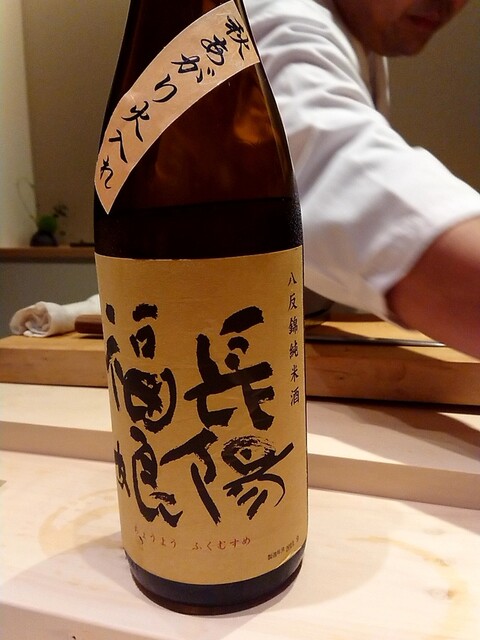 秋あがり火入れ
八反錦純米酒
長陽
福娘
ちょうよう ふくむすめ